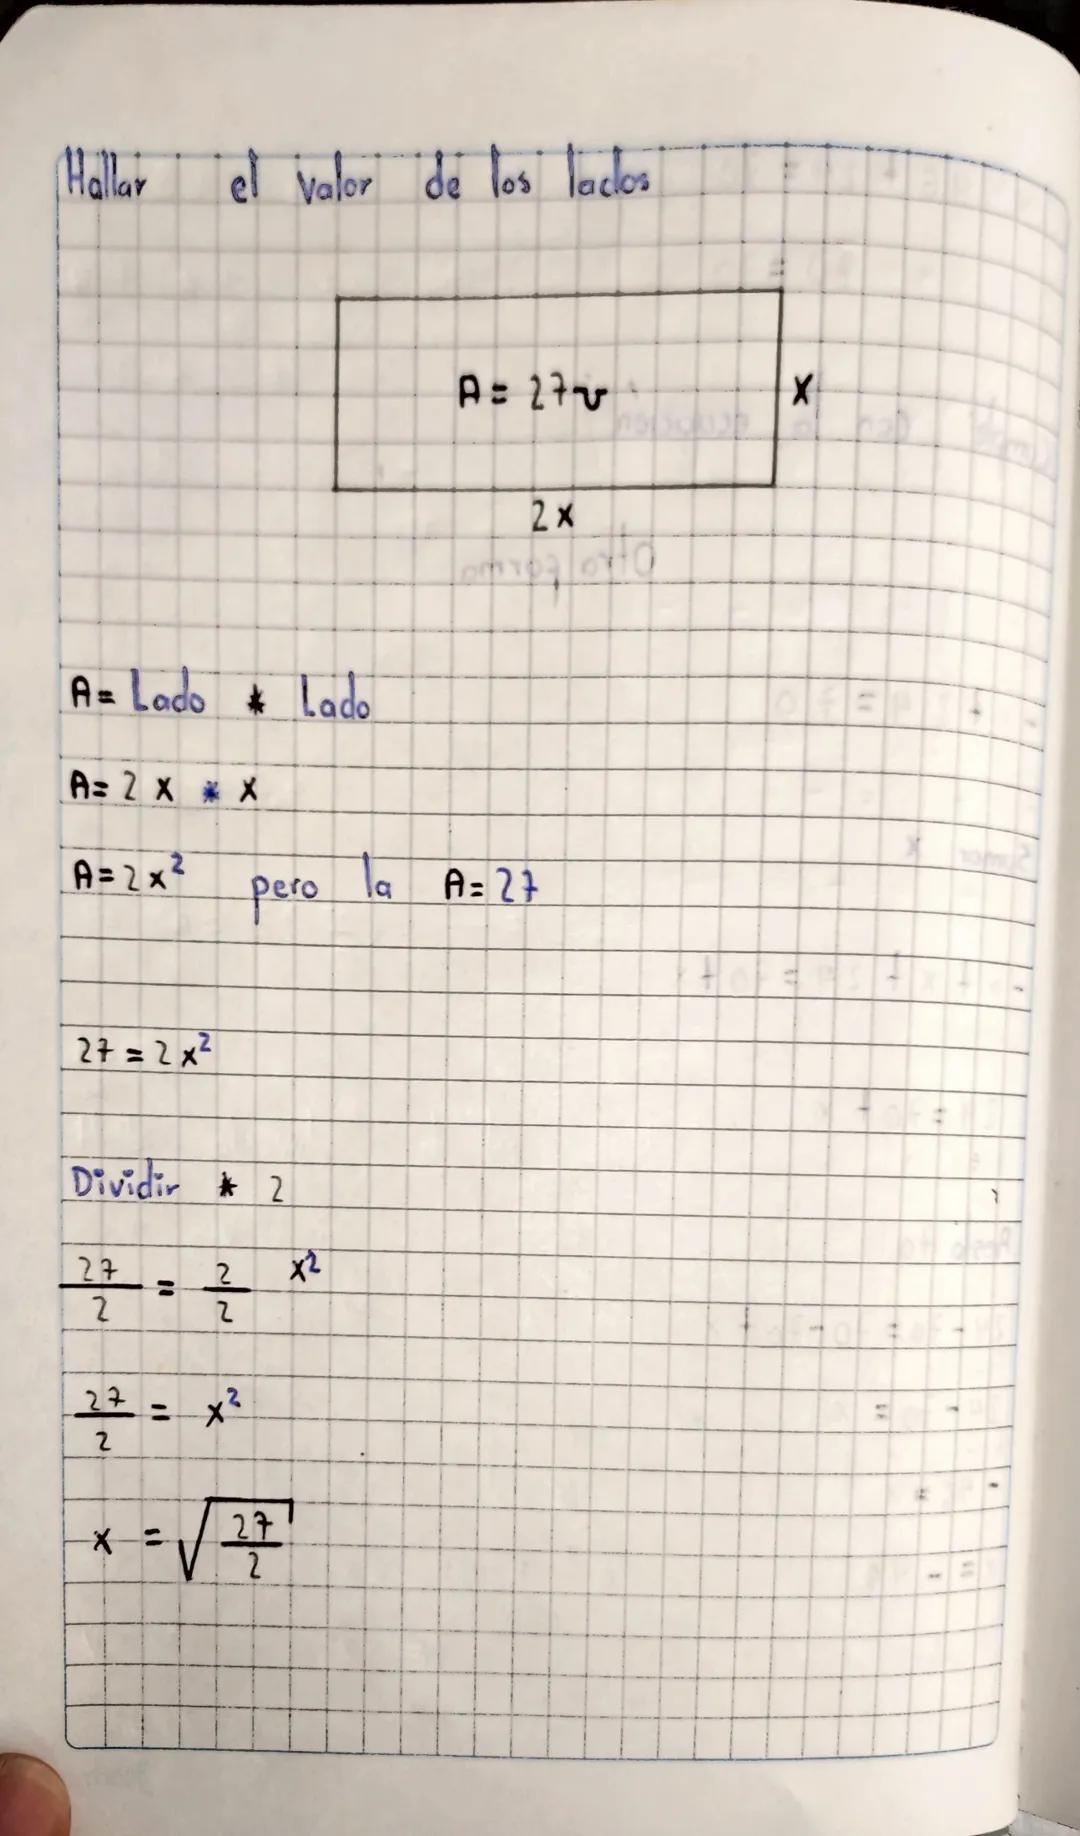 Hallar el valor de los lados
A= 27v
x
2x
A= Lado * Lado
A= 2 x * x
A=2x² pero la A=27
27=2x²
Dividir * 2
27/2 = 2/2 x²
27/2 = x²
x = √27/2